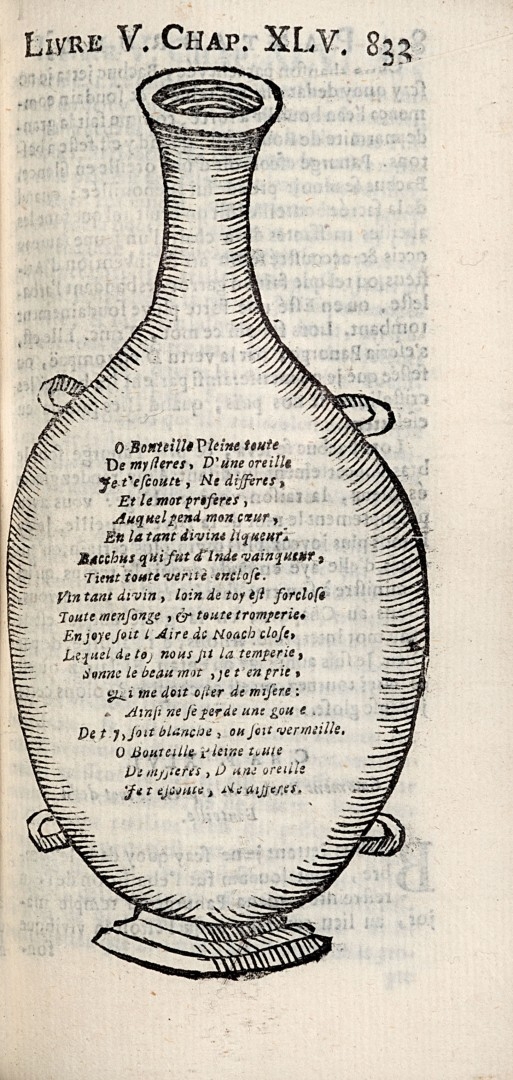 LIVRE V. CHAP. XLV. 833
O Bouteille Pleine toute
De myſteres, D'une oreille
Je t'eſcoute, Ne differes,
Et le mot proferes,
Auquel pend mon cœur,
En la tant divine liqueur.
Bacchus qui fut d'Inde vainqueur,
Tient toute verité encloſe.
Vin tant divin, loin de toy eſt forcloſe
Toute menſonge, & toute tromperie.
En joye ſoit l'Aire de Noach cloſe,
Lequel de toy nous fit la temperie,
Sonne le beau mot, je t'en prie,
Qui me doit oſter de miſere:
Ainſi ne ſe perde une goute
De toy, ſoit blanche, ou ſoit vermeille.
O Bouteille Pleine toute
De myſteres, D'une oreille
Je t'eſcoute, Ne differes.